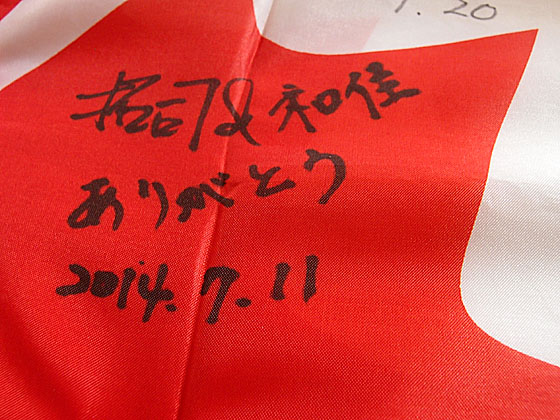 7.20
拓司&和佳
ありがとう
2014.7.11